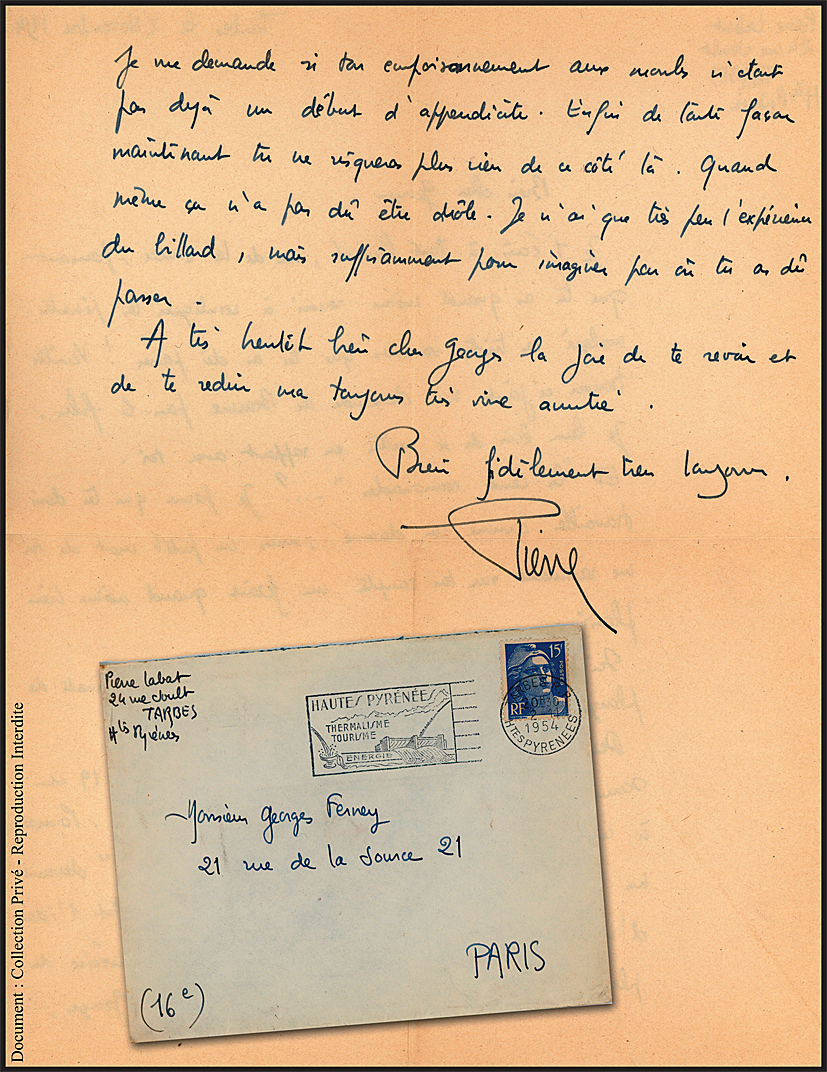 Je me demande si ton empoisonnement aux moules n'etait
pas dejà un début d'appendicite. Enfin de toute façon
maintenant tu ne risqueras plus rien de ce côté là. Quand
même ça n'a pas dû être drôle. Je n'ai que très peu l'expérience
du billard, mais suffisamment pour imaginer par où tu as dû
passer.
A très bientôt bien cher Georges la joie de te revoir et
de te redire ma toujours très vive amitié.
Bien fidèlement tien toujours.
Pierre
Pierre Labat
24 rue Soult
TARBES
Htes Pyrénées
HAUTES PYRÉNÉES
THERMALISME
TOURISME
ENERGIE
15F
POSTES
RF
1954
HTES PYRENEES
Monsieur Georges Ferney
21 rue de la Source 21
PARIS
(16e)
Document : Collection Privé - Reproduction Interdite